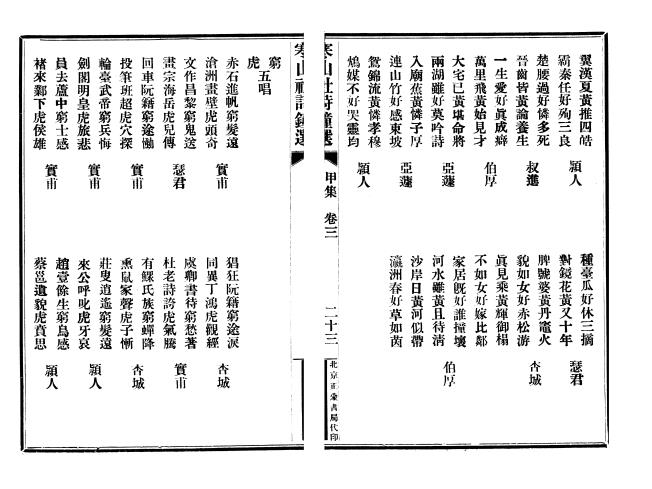 翼漢夏黃推四皓
霸秦任好殉三良　穎人
楚腰過好憐多死
晉齒皆黃論養生　叔進
一生愛好眞成癖
萬里飛黃始見才　伯厚
大宅已黃堪命將
兩湖雖好莫吟詩　亞蘧
入廟蕉黃憐子厚
連山竹好感東坡　亞蘧
鴛錦流黃憐孝穆
鴆媒不好哭靈均　穎人
種臺瓜好休三摘
對鏡花黃又十年　瑟君
脾號婆黃丹竈火
貌如女好赤松游　杏城
眞見乘黃輝御榻
不如女好嫁比鄰
家居旣好誰撞壞
河水雖黃且待清　伯厚
沙岸日黃河似帶
瀛洲春好草如茵
寒山社詩鐘選　甲集　卷三　二十三　北京正蒙書局代印
寒山社詩鐘選
窮虎五唱
赤石進帆窮髮遠
滄洲畫壁虎頭奇　實甫
文作昌黎窮鬼送
畫宗海岳虎兒傳　瑟君
回車阮籍窮途慟
投筆班超虎穴探　實甫
輪臺武帝窮兵悔
劍閣明皇虎旅悲　實甫
員去蘆中窮士感
褚來鄴下虎侯雄　實甫
猖狂阮籍窮途淚
同異丁鴻虎觀經　杏城
虞卿書待窮愁著
杜老詩誇虎氣騰　實甫
有鰥氏族窮蟬降
熏鼠家聲虎子慚　杏城
莊叟逍遙窮髮遠
來公呼叱虎牙哀　穎人
趙壹餘生窮鳥感
蔡邕遺貌虎賁思　穎人